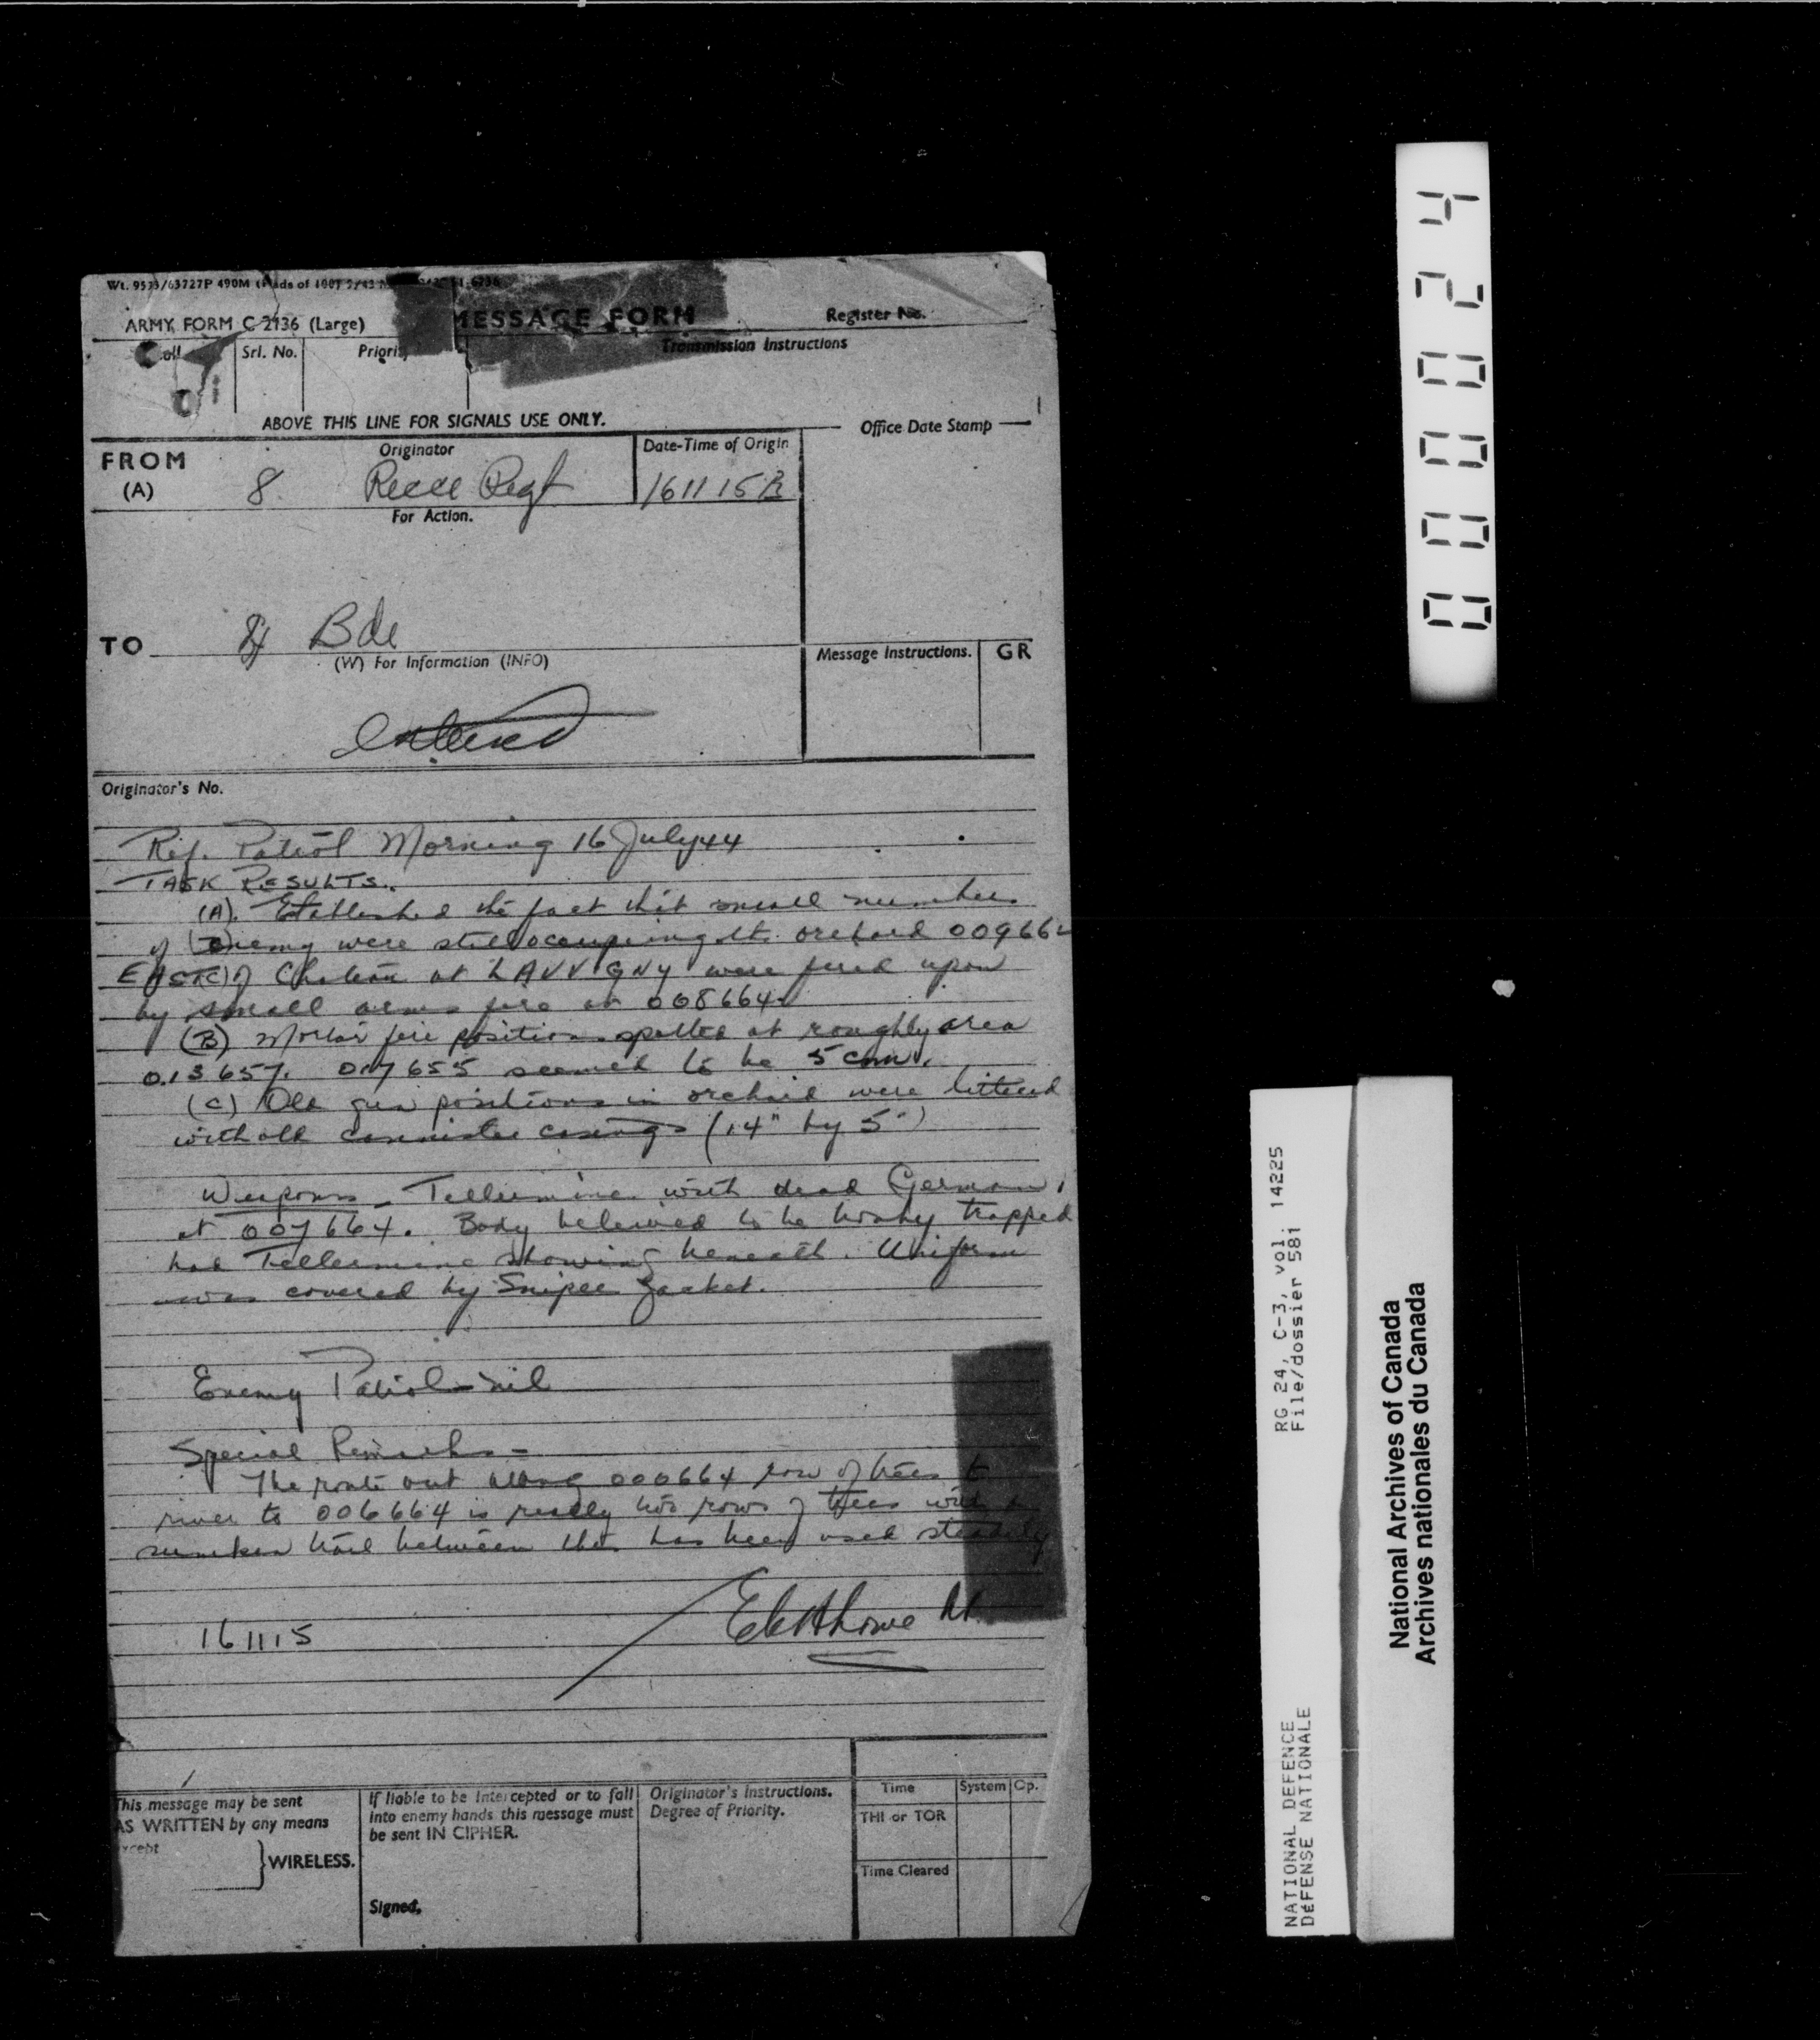 Wt. 9573/63727P 490M (Pads of 100)
ARMY FORM C 2136 (Large)
MESSAGE FORM
Register No.
Call
Srl. No.
Priority
Transmission Instructions
ABOVE THIS LINE FOR SIGNALS USE ONLY.
Office Date Stamp
FROM
(A)
Originator
8 Recce Regt
Date-Time of Origin
161115B
For Action.
TO
Bde
(W) For Information (INFO)
Message Instructions.
GR
entered
Originator's No.
Ref. Patrol Morning 16 July 44
TASK RESULTS.
(A). Established the fact that small number
of enemy were still occupying the orchard 009662
EAST of Chateau at were fired upon
by small arms fire at 008664.
(B) Mortar fire position spotted at roughly area
013657. 017655 seemed to be 5 cm.
(C) Old gun positions in orchard were littered
with old cannister casings (14" by 5")
Weapons - Tellermine with dead German
at 007664. Body believed to be booby trapped
had Tellermine showing beneath. Uniform
was covered by Sniper Jacket.
Enemy Patrol - nil
Special Remarks -
The route out along 000664 row of trees
river to 006664 is really two rows of trees with
sunken trail between that has been used steadily
161115
This message may be sent
AS WRITTEN by any means
except
WIRELESS.
If liable to be intercepted or to fall
into enemy hands this message must
be sent IN CIPHER.
Signed,
Originator's Instructions.
Degree of Priority.
Time
System
Cp.
THI or TOR
Time Cleared
000024
RG 24, C-3, vol. 14225
File/dossier 581
NATIONAL DEFENCE
DÉFENSE NATIONALE
National Archives of Canada
Archives nationales du Canada